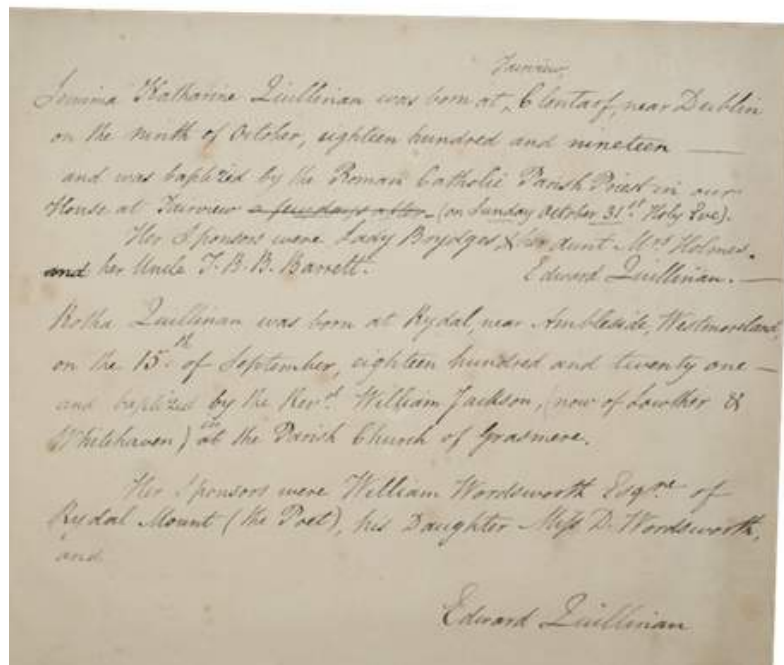 Fairview
Jemima Katharine Quillinan was born at ‸ Clontarf, near Dublin
on the ninth of October, eighteen hundred and nineteen —
and was baptized by the Roman Catholic Parish Priest in our
House at Fairview a few days after (on Sunday October 31st Holy Eve).
Her Sponsors were Lady Brydges, & her Aunt Mrs Holmes.
and her Uncle T. B. B. Barrett. Edward Quillinan. —
Rotha Quillinan was born at Rydal, near Ambleside, Westmoreland,
on the 15th of September, eighteen hundred and twenty one —
and baptized by the Revd. William Jackson, (now of Lowther &
Whitehaven) at the Parish Church of Grasmere.
Her Sponsors were William Wordsworth Esqre of
Rydal Mount (the Poet), his Daughter Miss D. Wordsworth,
and
Edward Quillinan